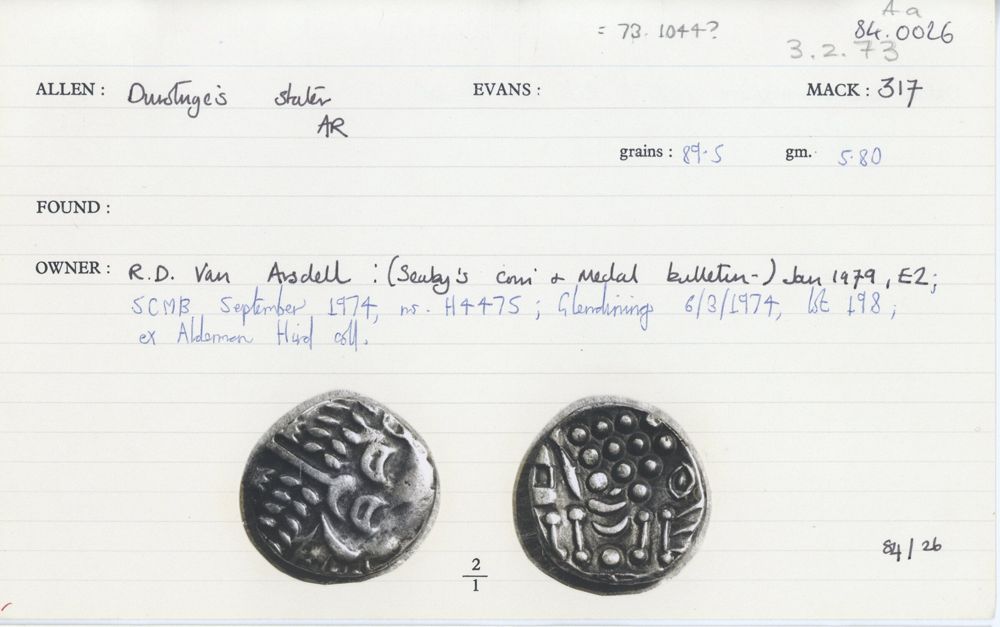 A a
= 73. 1044? 84.0026
3.2.73
ALLEN : Durotriges stater EVANS : MACK : 317
AR
grains : 89.5 gm. 5.80
FOUND :
OWNER : R.D. Van Arsdell : (Seaby's coin & Medal bulletin-) Jan 1979, E2;
SCMB September 1974, no. H4475 ; Glendining 6/3/1974, lot 198 ;
ex Alderman Hird coll.
84/26
2
1